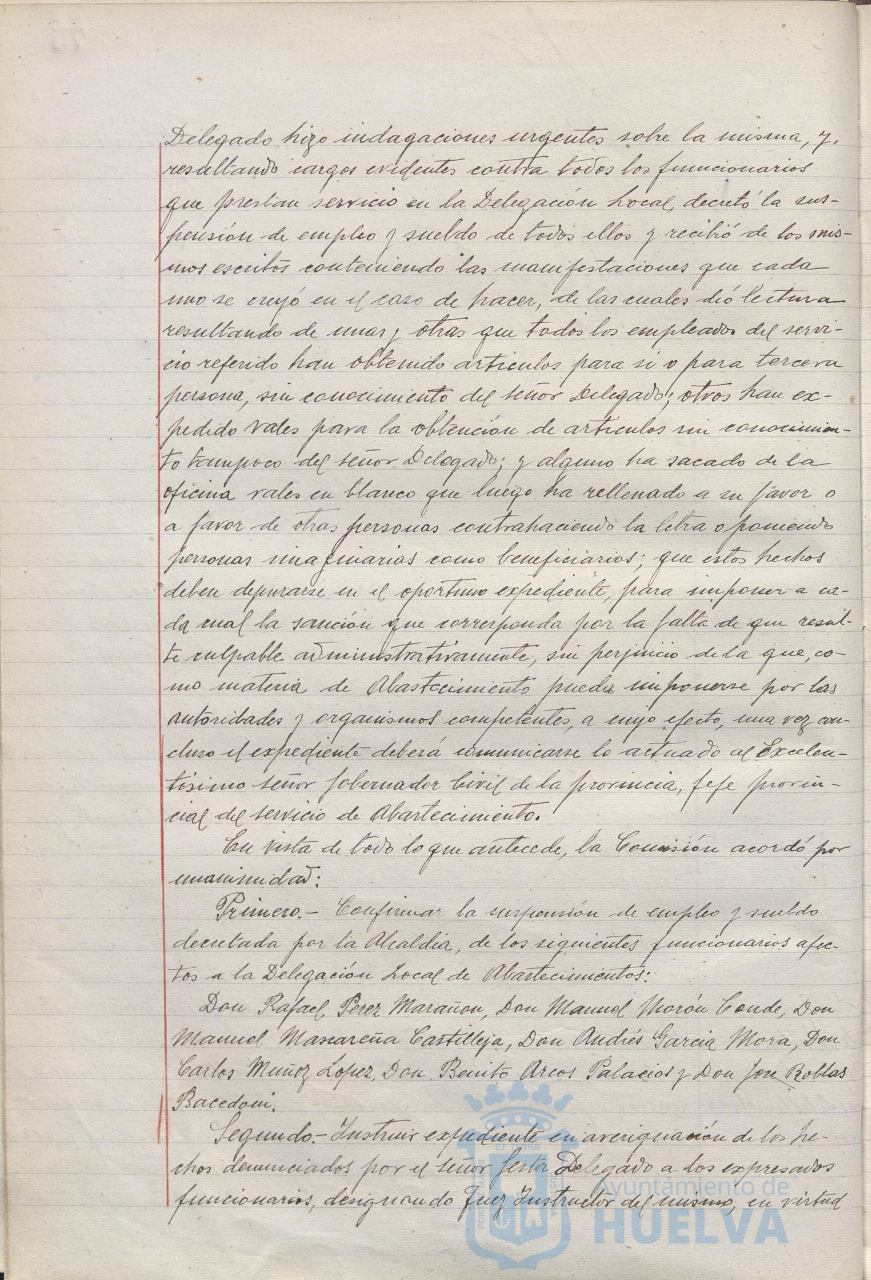 Delegado hizo indagaciones urgentes sobre la misma, y,
resultando cargos evidentes contra todos los funcionarios
que prestan servicio en la Delegación Local, decretó la sus-
pensión de empleo y sueldo de todos ellos y recibió de los mis-
mos escritos conteniendo las manifestaciones que cada
uno se creyó en el caso de hacer, de las cuales dió lectura
resultando de unas y otras que todos los empleados del servi-
cio referido han obtenido artículos para si o para tercera
persona, sin conocimiento del señor Delegado; otros han ex-
pedido vales para la obtención de artículos sin conocimien-
to tampoco del señor Delegado; y alguno ha sacado de la
oficina vales en blanco que luego ha rellenado a su favor o
a favor de otras personas contrahaciendo la letra o poniendo
personas imaginarias como beneficiarios; que estos hechos
deben depurarse en el oportuno expediente, para imponer a ca-
da cual la sanción que corresponda por la falta de que resul-
te culpable administrativamente, sin perjuicio de la que, co-
mo materia de Abastecimiento pueda imponerse por las
autoridades y organismos competentes, a cuyo efecto, una vez con-
cluso el expediente deberá comunicarse lo actuado al Excelen-
tísimo señor Gobernador Civil de la provincia, Jefe provin-
cial del servicio de Abastecimiento.
En vista de todo lo que antecede, la Comisión acordó por
unanimidad:
Primero.- Confirmar la suspensión de empleo y sueldo
decretada por la Alcaldia, de los siguientes funcionarios afec-
tos a la Delegación Local de Abastecimientos:
Don Rafael Perez Marañon, Don Manuel Morón Conde, Don
Manuel Mascareña Castilleja, Don Andrés Garcia Mora, Don
Carlos Muñoz López, Don Benito Arcos Palacios y Don Jose Roblas
Bacedoni.
Segundo.- Instruir expediente en averiguación de los he-
chos denunciados por el señor Gestor Delegado a los expresados
funcionarios, designando Juez Instructor del mismo, en virtud
Ayuntamiento de
HUELVA